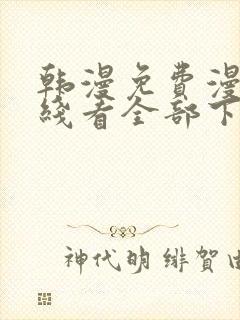 韩漫免费漫
线看全部下
神代明绯贺由